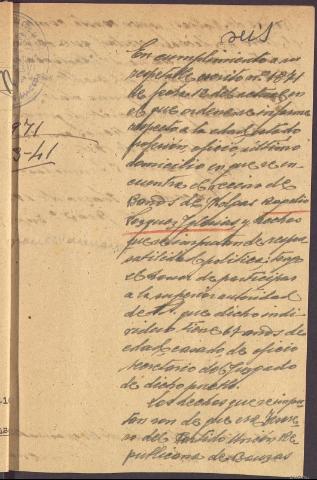 seis
971
3-41
En cumplimiento a su
respetable escrito nº 1871
de fecha 12 del actual, en
el que ordena se informe
respecto a la edad, estado
profesión, oficio, último
domicilio en que se en-
cuentra el vecino de
Baños de Molgas Rogelio
y hechos
que se imputan de respon-
sabilidad politica; tengo
el honor de participar
a la superior autoridad
de V. que dicho indi-
viduo tiene 67 años de
edad, casado, de oficio
secretario del Juzgado
de dicho pueblo.
Los dechos que se impu-
tan son de que era
ro del Partido Unión Re-
publicana de